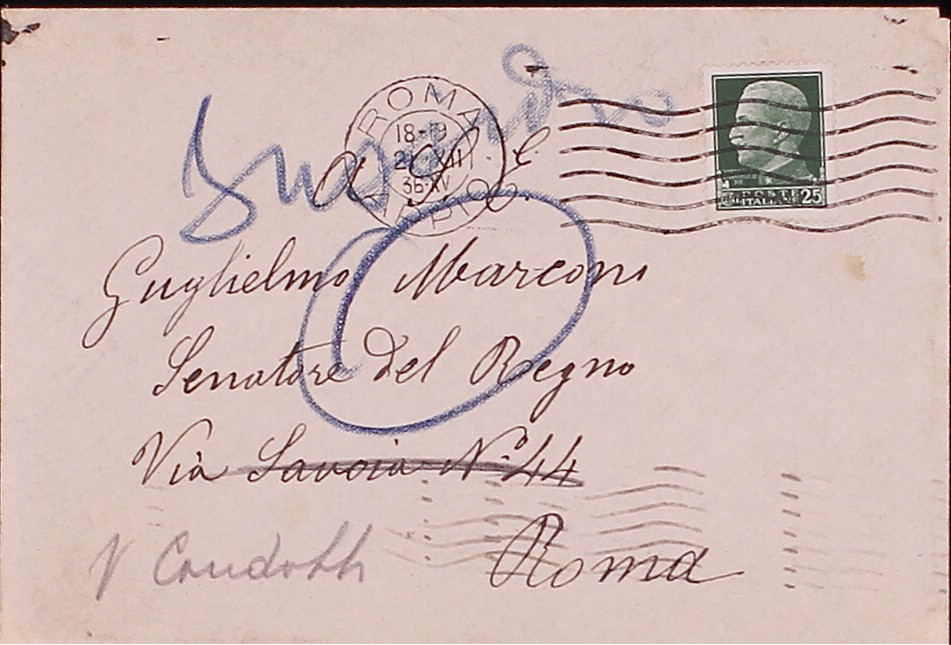 ROMA
18-19
XII
36·XV
POSTE ITALIANE 25
a S. E.
Guglielmo Marconi
Senatore del Regno
Via Savoia Nº 44
V Condotti
Roma